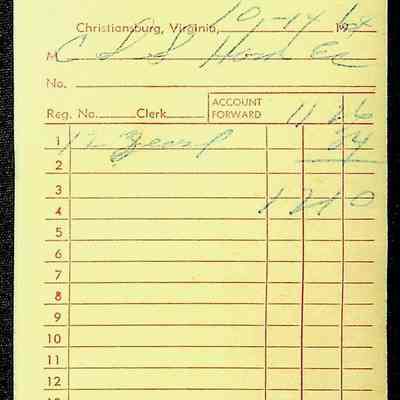 Christiansburg, Virginia, 10-14 19
M C & S Hard
No.
Reg. No. Clerk ACCOUNT FORWARD 11 26
1 84
2
3
4 1210
5
6
7
8
9
10
11
12